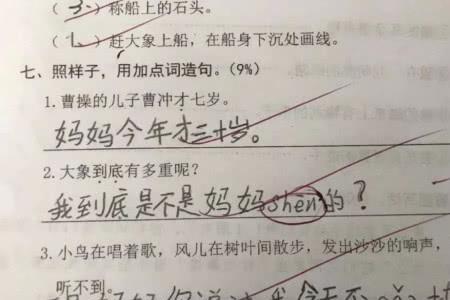 （3）称船上的石头。
（1）赶大象上船，在船身下沉处画线。
七、照样子，用加点词造句。（9%）
1.曹操的儿子曹冲才七岁。
妈妈今年才三十岁。
2.大象到底有多重呢？
我到底是不是妈妈shēn的？
3.小鸟在唱着歌，风儿在树叶间散步，发出沙沙的响声，
听不到。